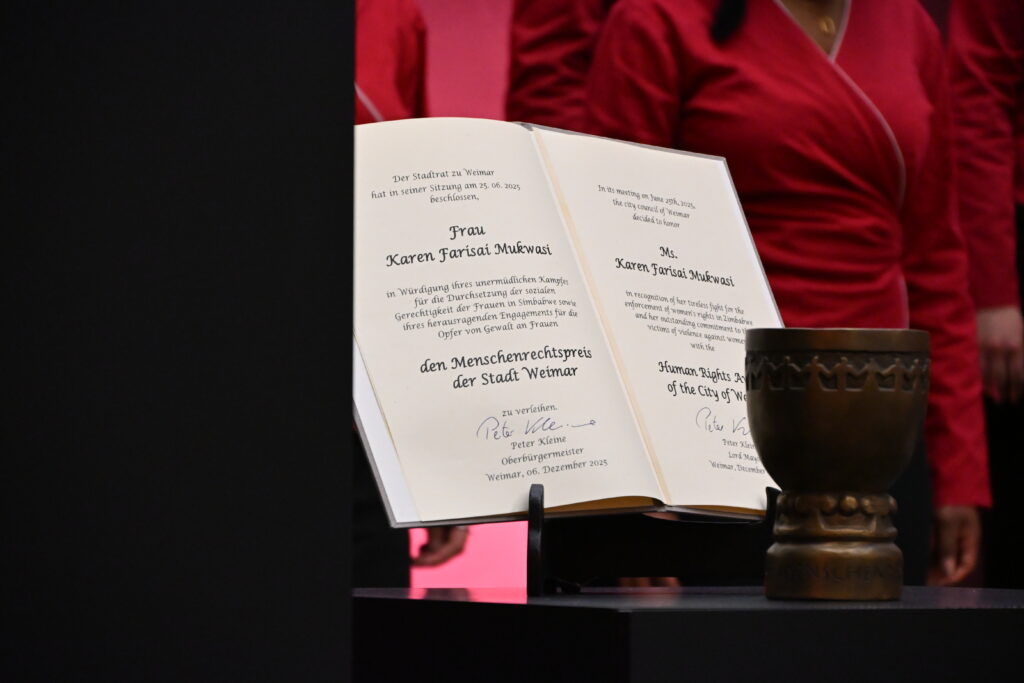 Der Stadtrat zu Weimar
hat in seiner Sitzung am 25. 06. 2025
beschlossen,
Frau
Karen Farisai Mukwasi
in Würdigung ihres unermüdlichen Kampfes
für die Durchsetzung der sozialen
Gerechtigkeit der Frauen in Simbabwe sowie
ihres herausragenden Engagements für die
Opfer von Gewalt an Frauen
den Menschenrechtspreis
der Stadt Weimar
zu verleihen.
Peter Kleine
Peter Kleine
Oberbürgermeister
Weimar, 06. Dezember 2025
In its meeting on June 25th, 2025,
the city council of Weimar
decided to honor
Ms.
Karen Farisai Mukwasi
in recognition of her tireless fight for the
enforcement of women's rights in Zimbabwe
and her outstanding commitment to th
victims of violence against wome
with the
Human Rights Aw
of the City of We
Peter Kl
Peter Klein
Lord Mayo
Weimar, December
MENSCHEN